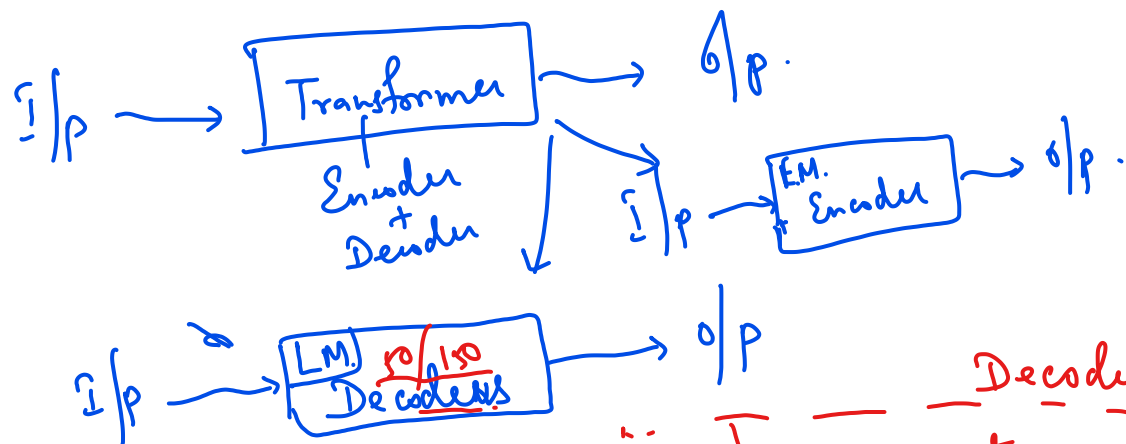 I/p
Transformer
O/p.
Encoder
+
Decoder
I/p
E.M.
Encoder
O/p.
I/p
L.M.
50/150
Decoders
O/p
Decode